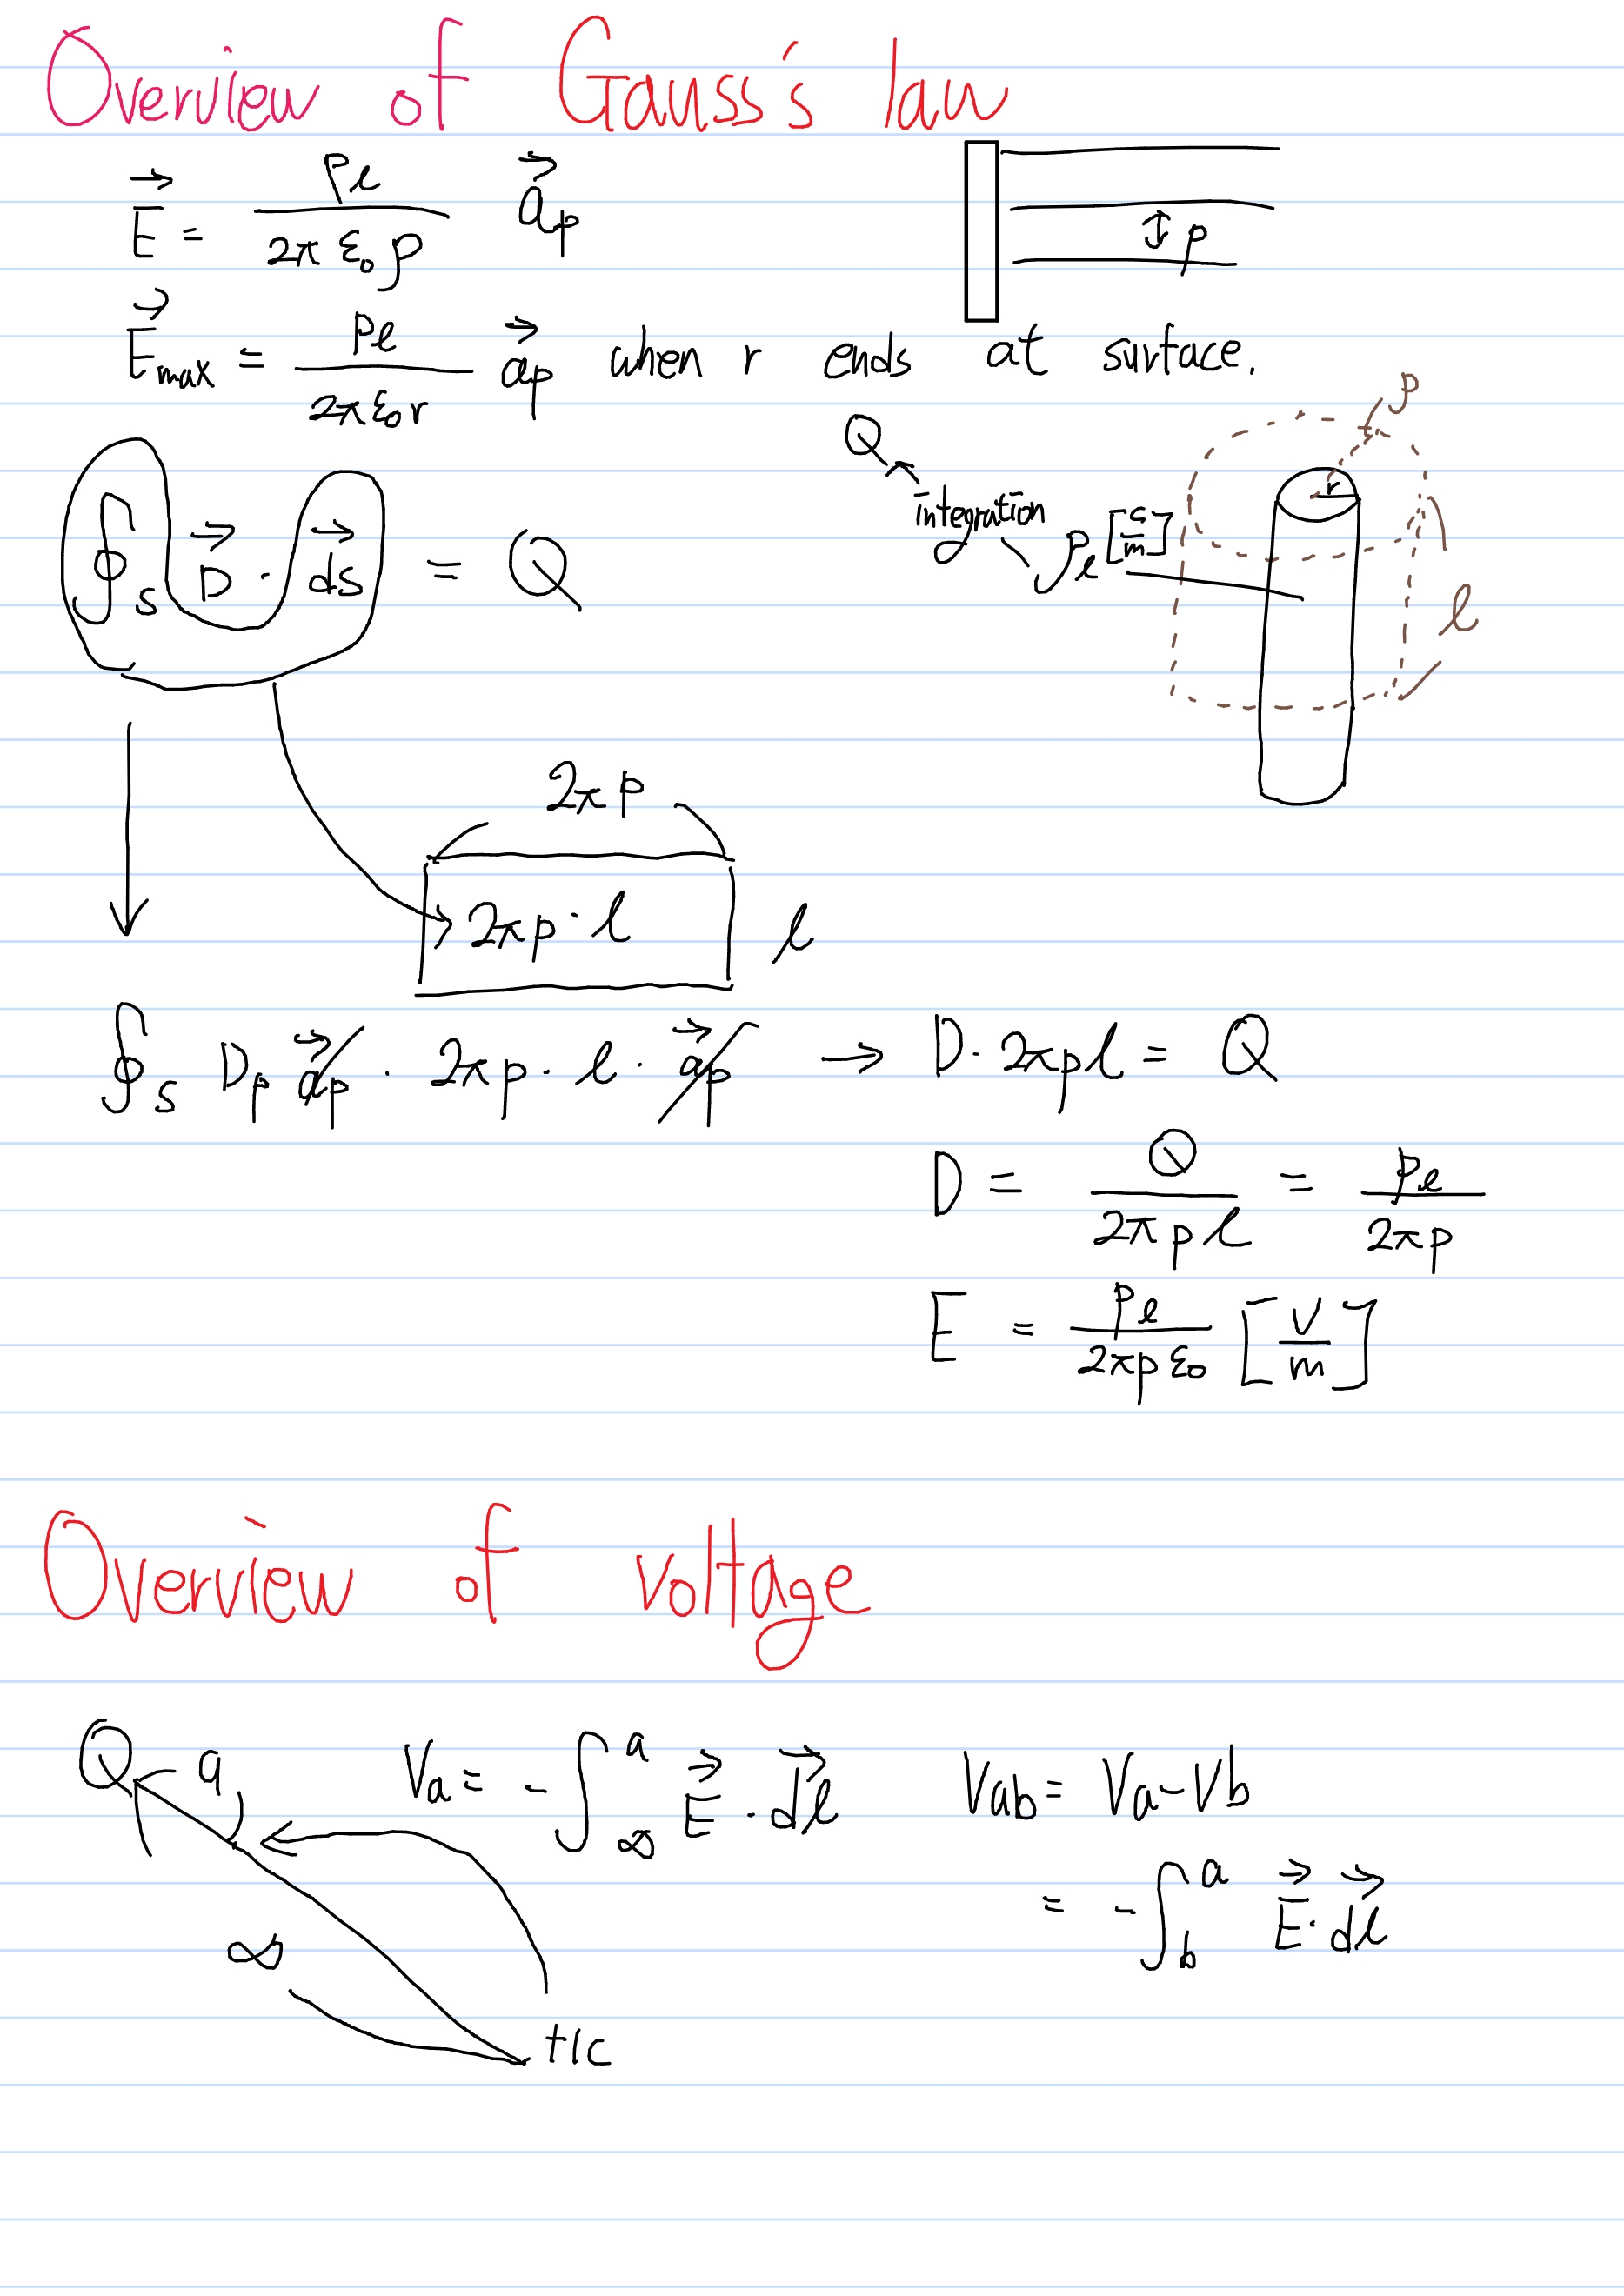 Overview of Gauss's law
E⃗ = ρℓ / (2π ε₀ ρ) a⃗ρ
ρ
E⃗max = ρℓ / (2π ε₀ r) a⃗ρ when r ends at surface.
ρ
Q
r
integration
ρℓ [c/m]
∮s D⃗ · ds⃗ = Q
ℓ
2πρ
2πρ · ℓ
ℓ
∮s Dρ a⃗ρ · 2πρ · ℓ · a⃗ρ → D · 2πρℓ = Q
D = Q / (2πρℓ) = ρℓ / (2πρ)
E = ρℓ / (2πρ ε₀) [V/m]
Overview of voltage
Q
a
Va = - ∫∞^a E⃗ · dℓ⃗
Vab = Va - Vb
= - ∫b^a E⃗ · dℓ⃗
∞
+1c